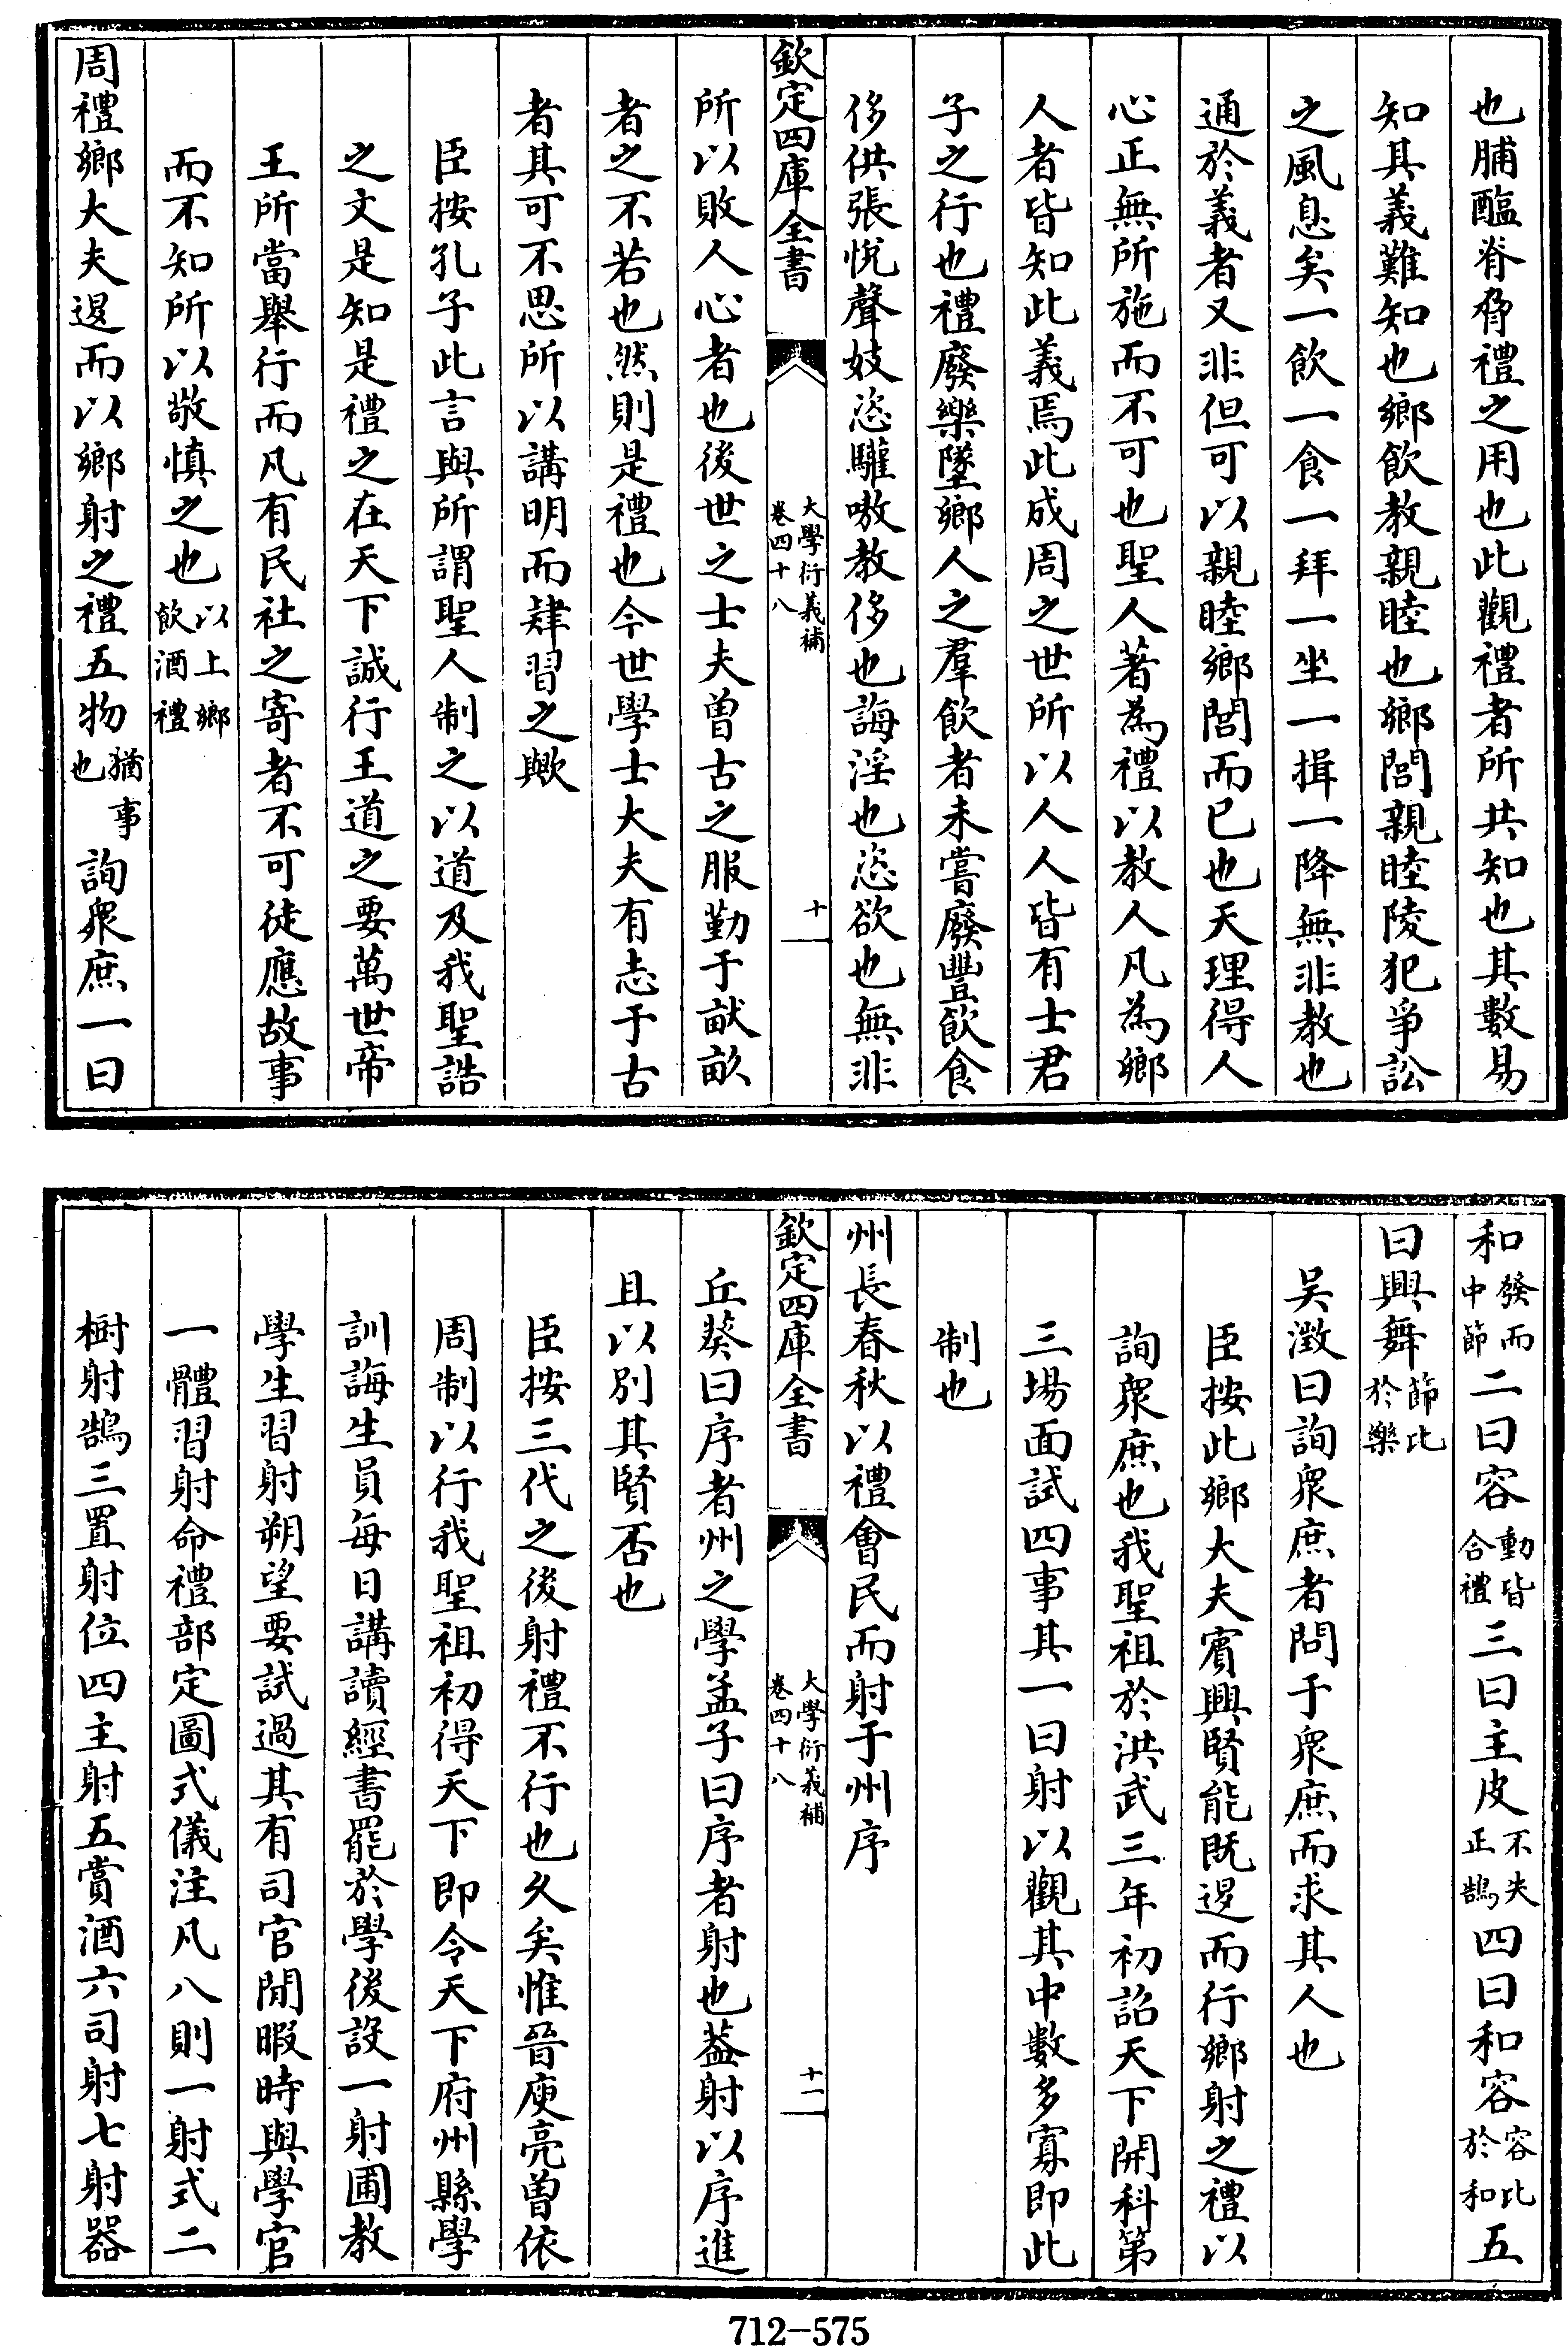 也脯醢脊脅禮之用也此觀禮者所共知也其數易
知其義難知也鄉飲教親睦也鄉閭親睦陵犯爭訟
之風息矣一飲一食一拜一坐一揖一降無非教也
通於義者又非但可以親睦鄉閭而已也天理得人
心正無所施而不可也聖人著為禮以教人凡為鄉
人者皆知此義焉此成周之世所以人人皆有士君
子之行也禮廢樂墜鄉人之羣飲者未嘗廢豐飲食
侈供張悅聲妓恣驩呶教侈也誨淫也恣欲也無非
欽定四庫全書
大學衍義補
卷四十八
十
所以敗人心者也後世之士夫曾古之服勤于畎畝
者之不若也然則是禮也今世學士大夫有志于古
者其可不思所以講明而肄習之歟
臣按孔子此言與所謂聖人制之以道及我聖誥
之文是知是禮之在天下誠行王道之要萬世帝
王所當舉行而凡有民社之寄者不可徒應故事
而不知所以敬慎之也以上鄉飲酒禮
周禮鄉大夫退而以鄉射之禮五物猶事也詢衆庶一曰
和發而中節二曰容動皆合禮三曰主皮不失正鵠四曰和容容比於和五
曰興舞節比於樂
吳澂曰詢衆庶者問于衆庶而求其人也
臣按此鄉大夫賓興賢能既退而行鄉射之禮以
詢衆庶也我聖祖於洪武三年初詔天下開科第
三場面試四事其一曰射以觀其中數多寡即此
制也
州長春秋以禮會民而射于州序
欽定四庫全書
大學衍義補
卷四十八
十一
丘葵曰序者州之學孟子曰序者射也葢射以序進
且以别其賢否也
臣按三代之後射禮不行也久矣惟晉庾亮曾依
周制以行我聖祖初得天下即令天下府州縣學
訓誨生員每日講讀經書罷於學後設一射圃教
學生習射朔望要試過其有司官閒暇時與學官
一體習射命禮部定圖式儀注凡八則一射式二
樹射鵠三置射位四主射五賞酒六司射七射器
712-575